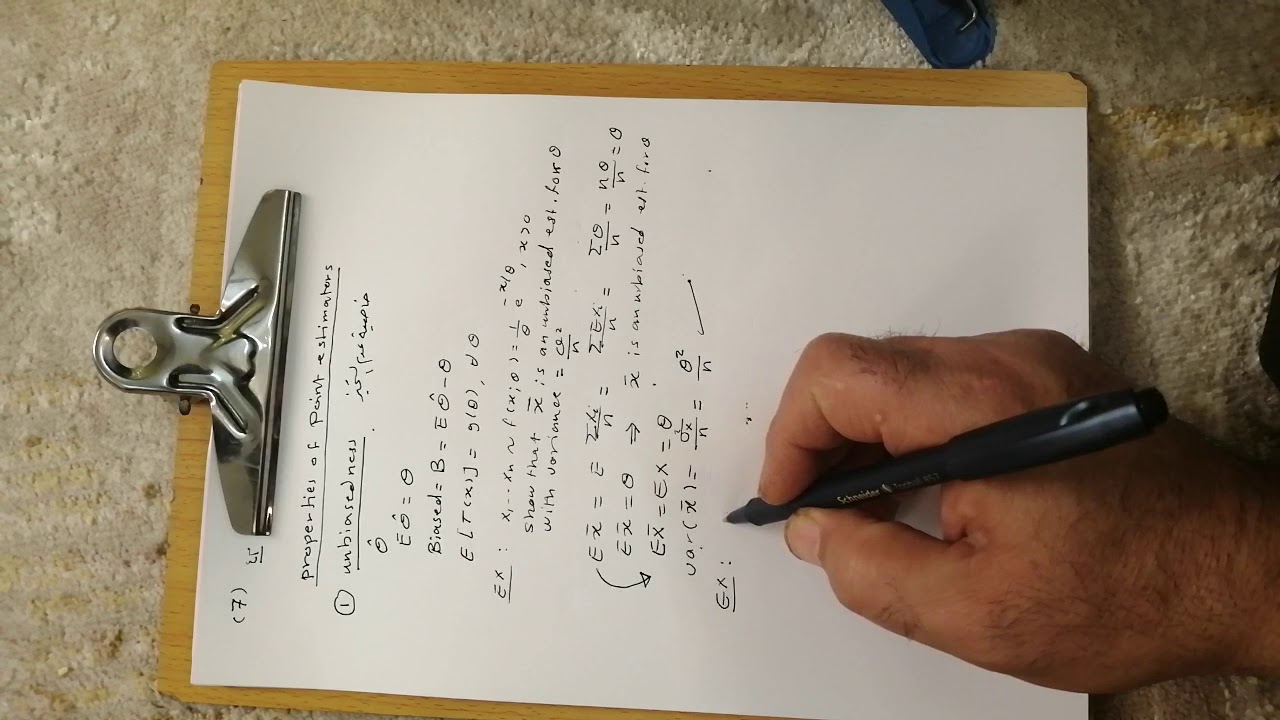 (7)
properties of Point estimators
① unbiasedness . خاصية عدم التحيز
θ̂
E θ̂ = θ
Biased = B = E θ̂ - θ
E[T(x)] = g(θ), d θ
EX : x₁ .. xn ~ f(x;θ) = 1/θ e^(-x/θ), x>0
show that x̄ is an unbiased est. for θ
with variance = θ²/n
E x̄ = E Σxi/n = ΣExi/n = Σθ/n = nθ/n = θ
E x̄ = θ ⇒ x̄ is an unbiased est. for θ
E x̄ = EX = θ
var(x̄) = σ²x/n = θ²/n
EX :
Schneider